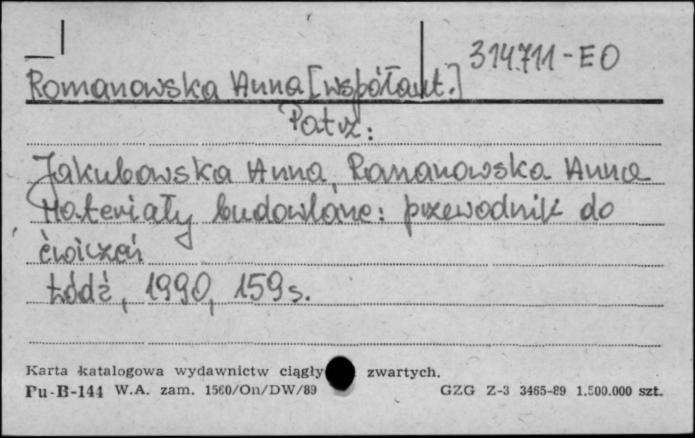 314.711-EO
Romanowska Anna [współaut.]
Patrz:
Jakubowska Anna, Romanowska Anna
Materiały budowlane: przewodnik do
ćwiczeń
Łódź, 1990, 159 s.
Karta katalogowa wydawnictw ciągły zwartych.
Pu-B-144 W.A. zam. 1560/On/DW/89 GZG Z-3 3465-89 1.500.000 szt.